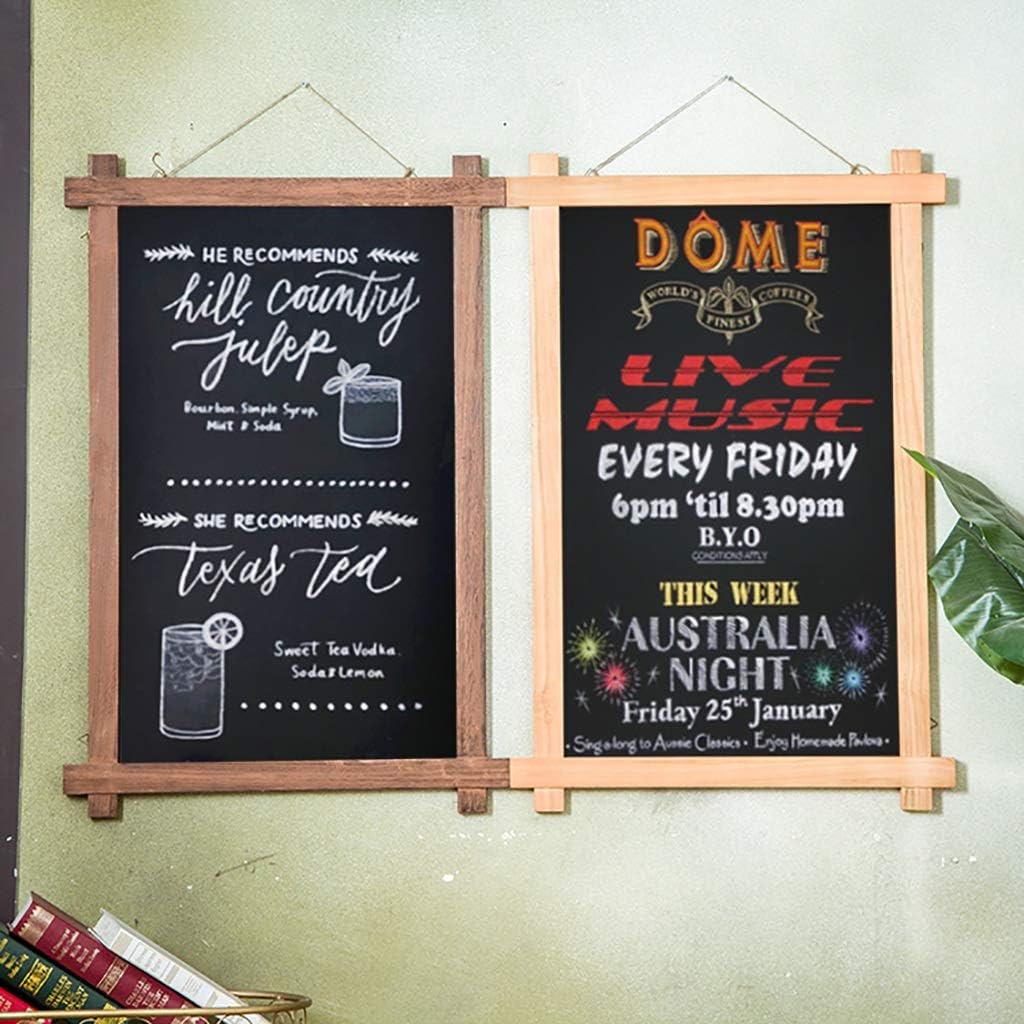 HE RECOMMENDS
hill country
julep
Bourbon. Simple Syrup,
Mint & Soda
SHE RECOMMENDS
Texas Tea
Sweet Tea Vodka.
Soda & Lemon
DÔME
WORLD'S FINEST COFFEES
LIVE
MUSIC
EVERY FRIDAY
6pm ‘til 8.30pm
B.Y.O
CONDITIONS APPLY
THIS WEEK
AUSTRALIA
NIGHT
Friday 25th January
• Sing-a-long to Aussie Classics • Enjoy Homemade Pavlova •
CHARLES
DARWIN